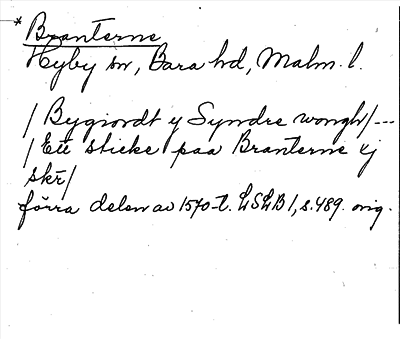 * Branterne
Hyby sn, Bara hd, Malm. l.
/ Bygiordt y Syndre wongh/---
/ Ett sticke paa Branterne xj
skr/
förra delen av 1570-t. LSLB 1, s. 489. orig.